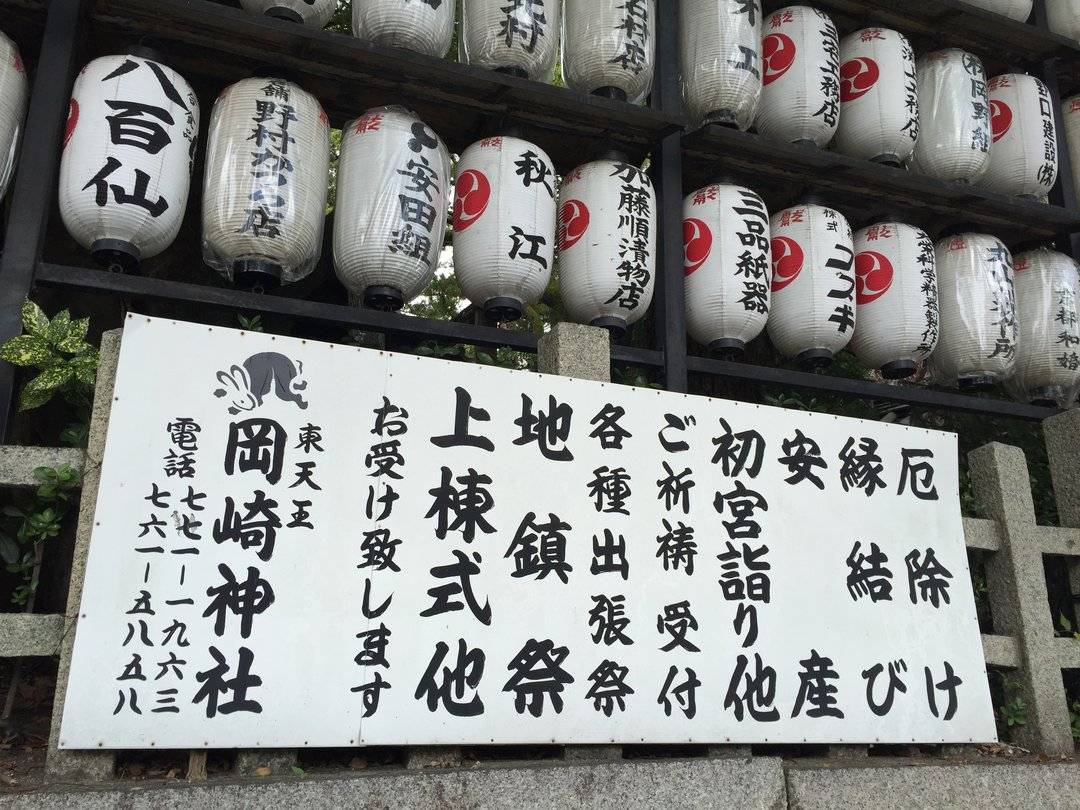 八百仙
野村
店
安田組
秋江
加藤順漬物店
三品紙器
株式
コスギ
野口建設(株
木工
村店
京都和婚
厄除け
縁結び
安産
初宮詣り他
ご祈祷受付
各種出張祭
地鎮祭
上棟式他
お受け致します
東天王
岡崎神社
電話 七七一－一九六三
七六一－五八五八